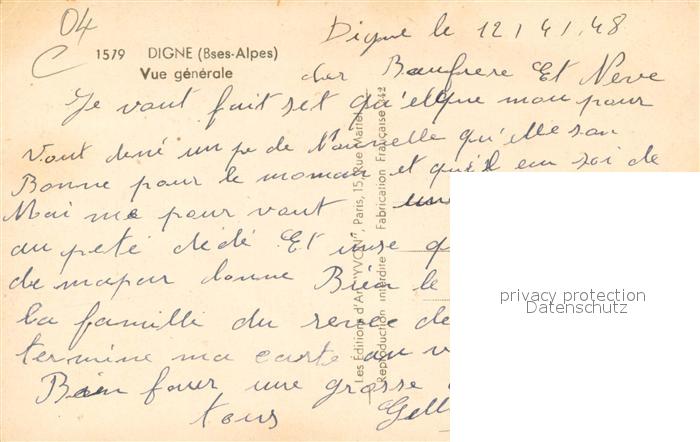 04
C
1579 DIGNE (Bses-Alpes)
Vue générale
Digne le 12/4/48
cher Baufrere Et Neve
Je vout fait set quelque mou pour
Vout dené un pe de Nouvelle qu'elle son
Bonne pour le moman et qu'il em soi de
Mai me pour vout
au peté dédé Et mise
de mapar donne Bien le
La famille du renée de
termine ma carte au
Bien faner une grosse
tous Gell
Les Éditions d'Art "YVON", Paris, 15, Rue Martel
Reproduction interdite Fabrication Française
privacy protection
Datenschutz